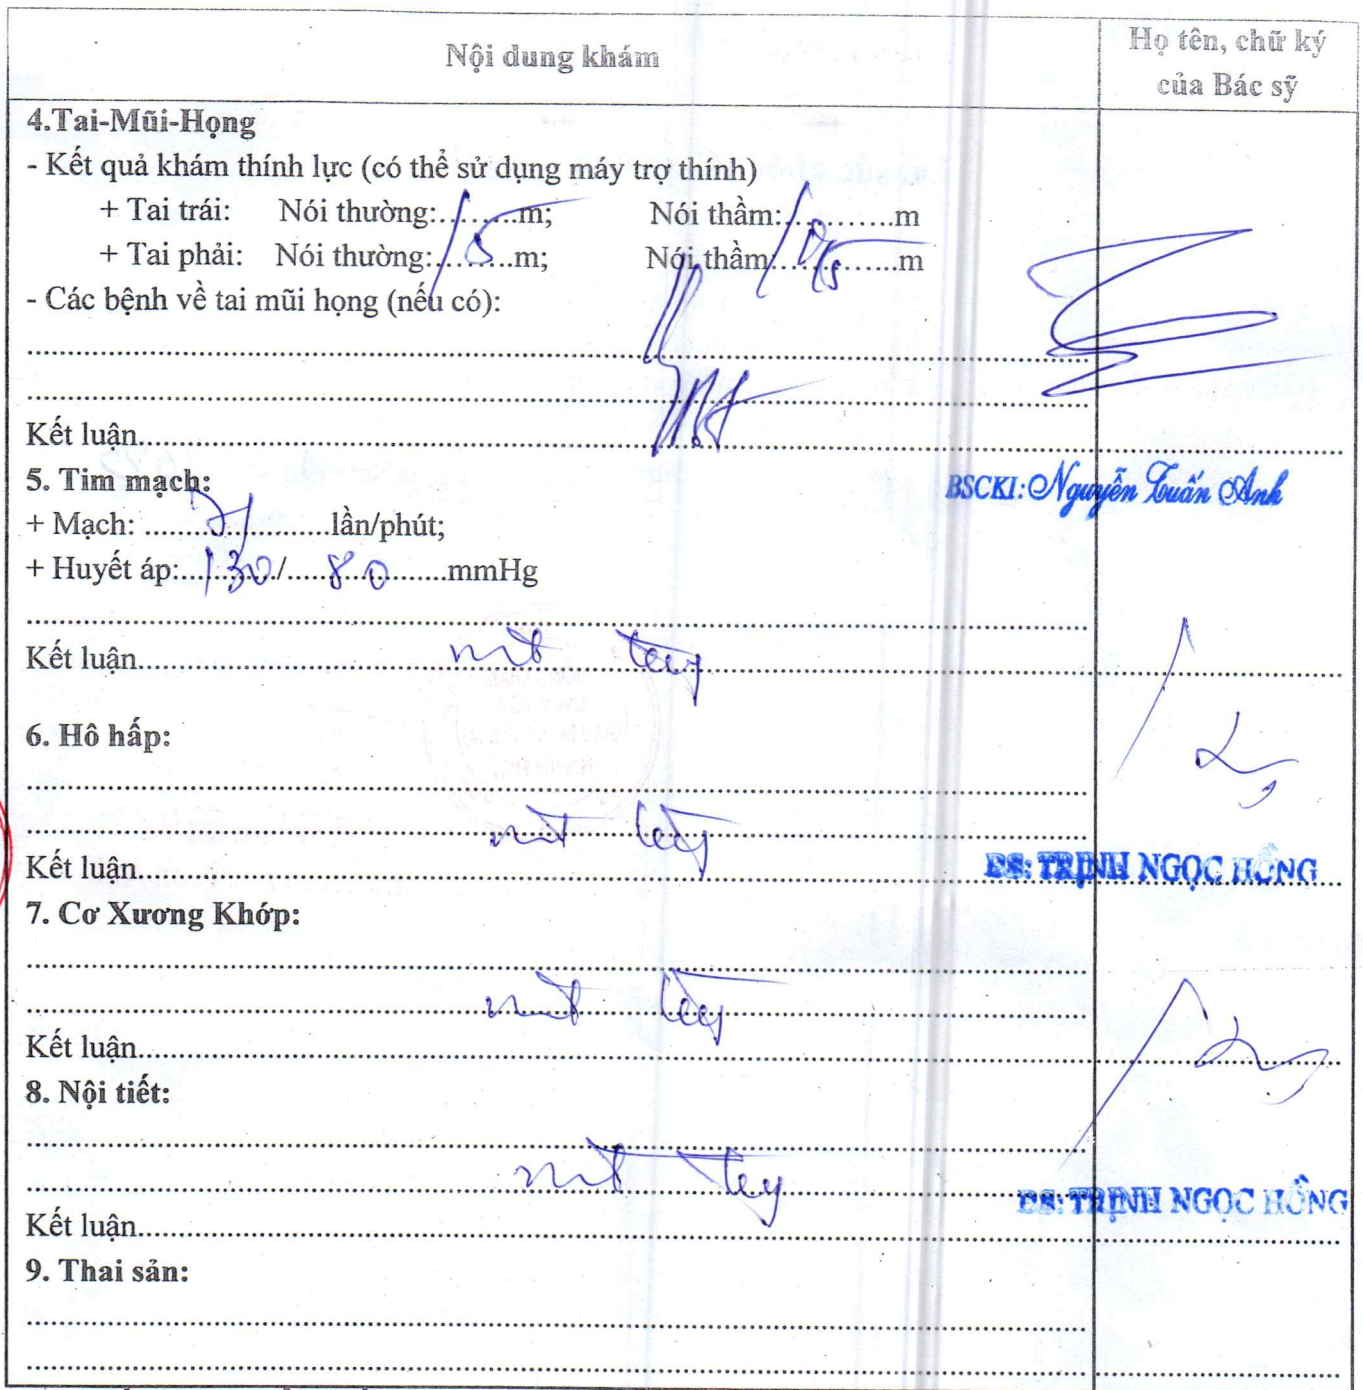 Nội dung khám
Họ tên, chữ ký
của Bác sỹ
4.Tai-Mũi-Họng
- Kết quả khám thính lực (có thể sử dụng máy trợ thính)
+ Tai trái: Nói thường:.........m; Nói thầm:............m
+ Tai phải: Nói thường:...5...m; Nói thầm:...0,5...m
- Các bệnh về tai mũi họng (nếu có):
Kết luận
BSCKI: Nguyễn Tuấn Anh
5. Tim mạch:
+ Mạch: ..................lần/phút;
+ Huyết áp:...130.../...80...mmHg
Kết luận
6. Hô hấp:
Kết luận
BS: TRỊNH NGỌC HỒNG
7. Cơ Xương Khớp:
Kết luận
8. Nội tiết:
BS: TRỊNH NGỌC HỒNG
Kết luận
9. Thai sản: